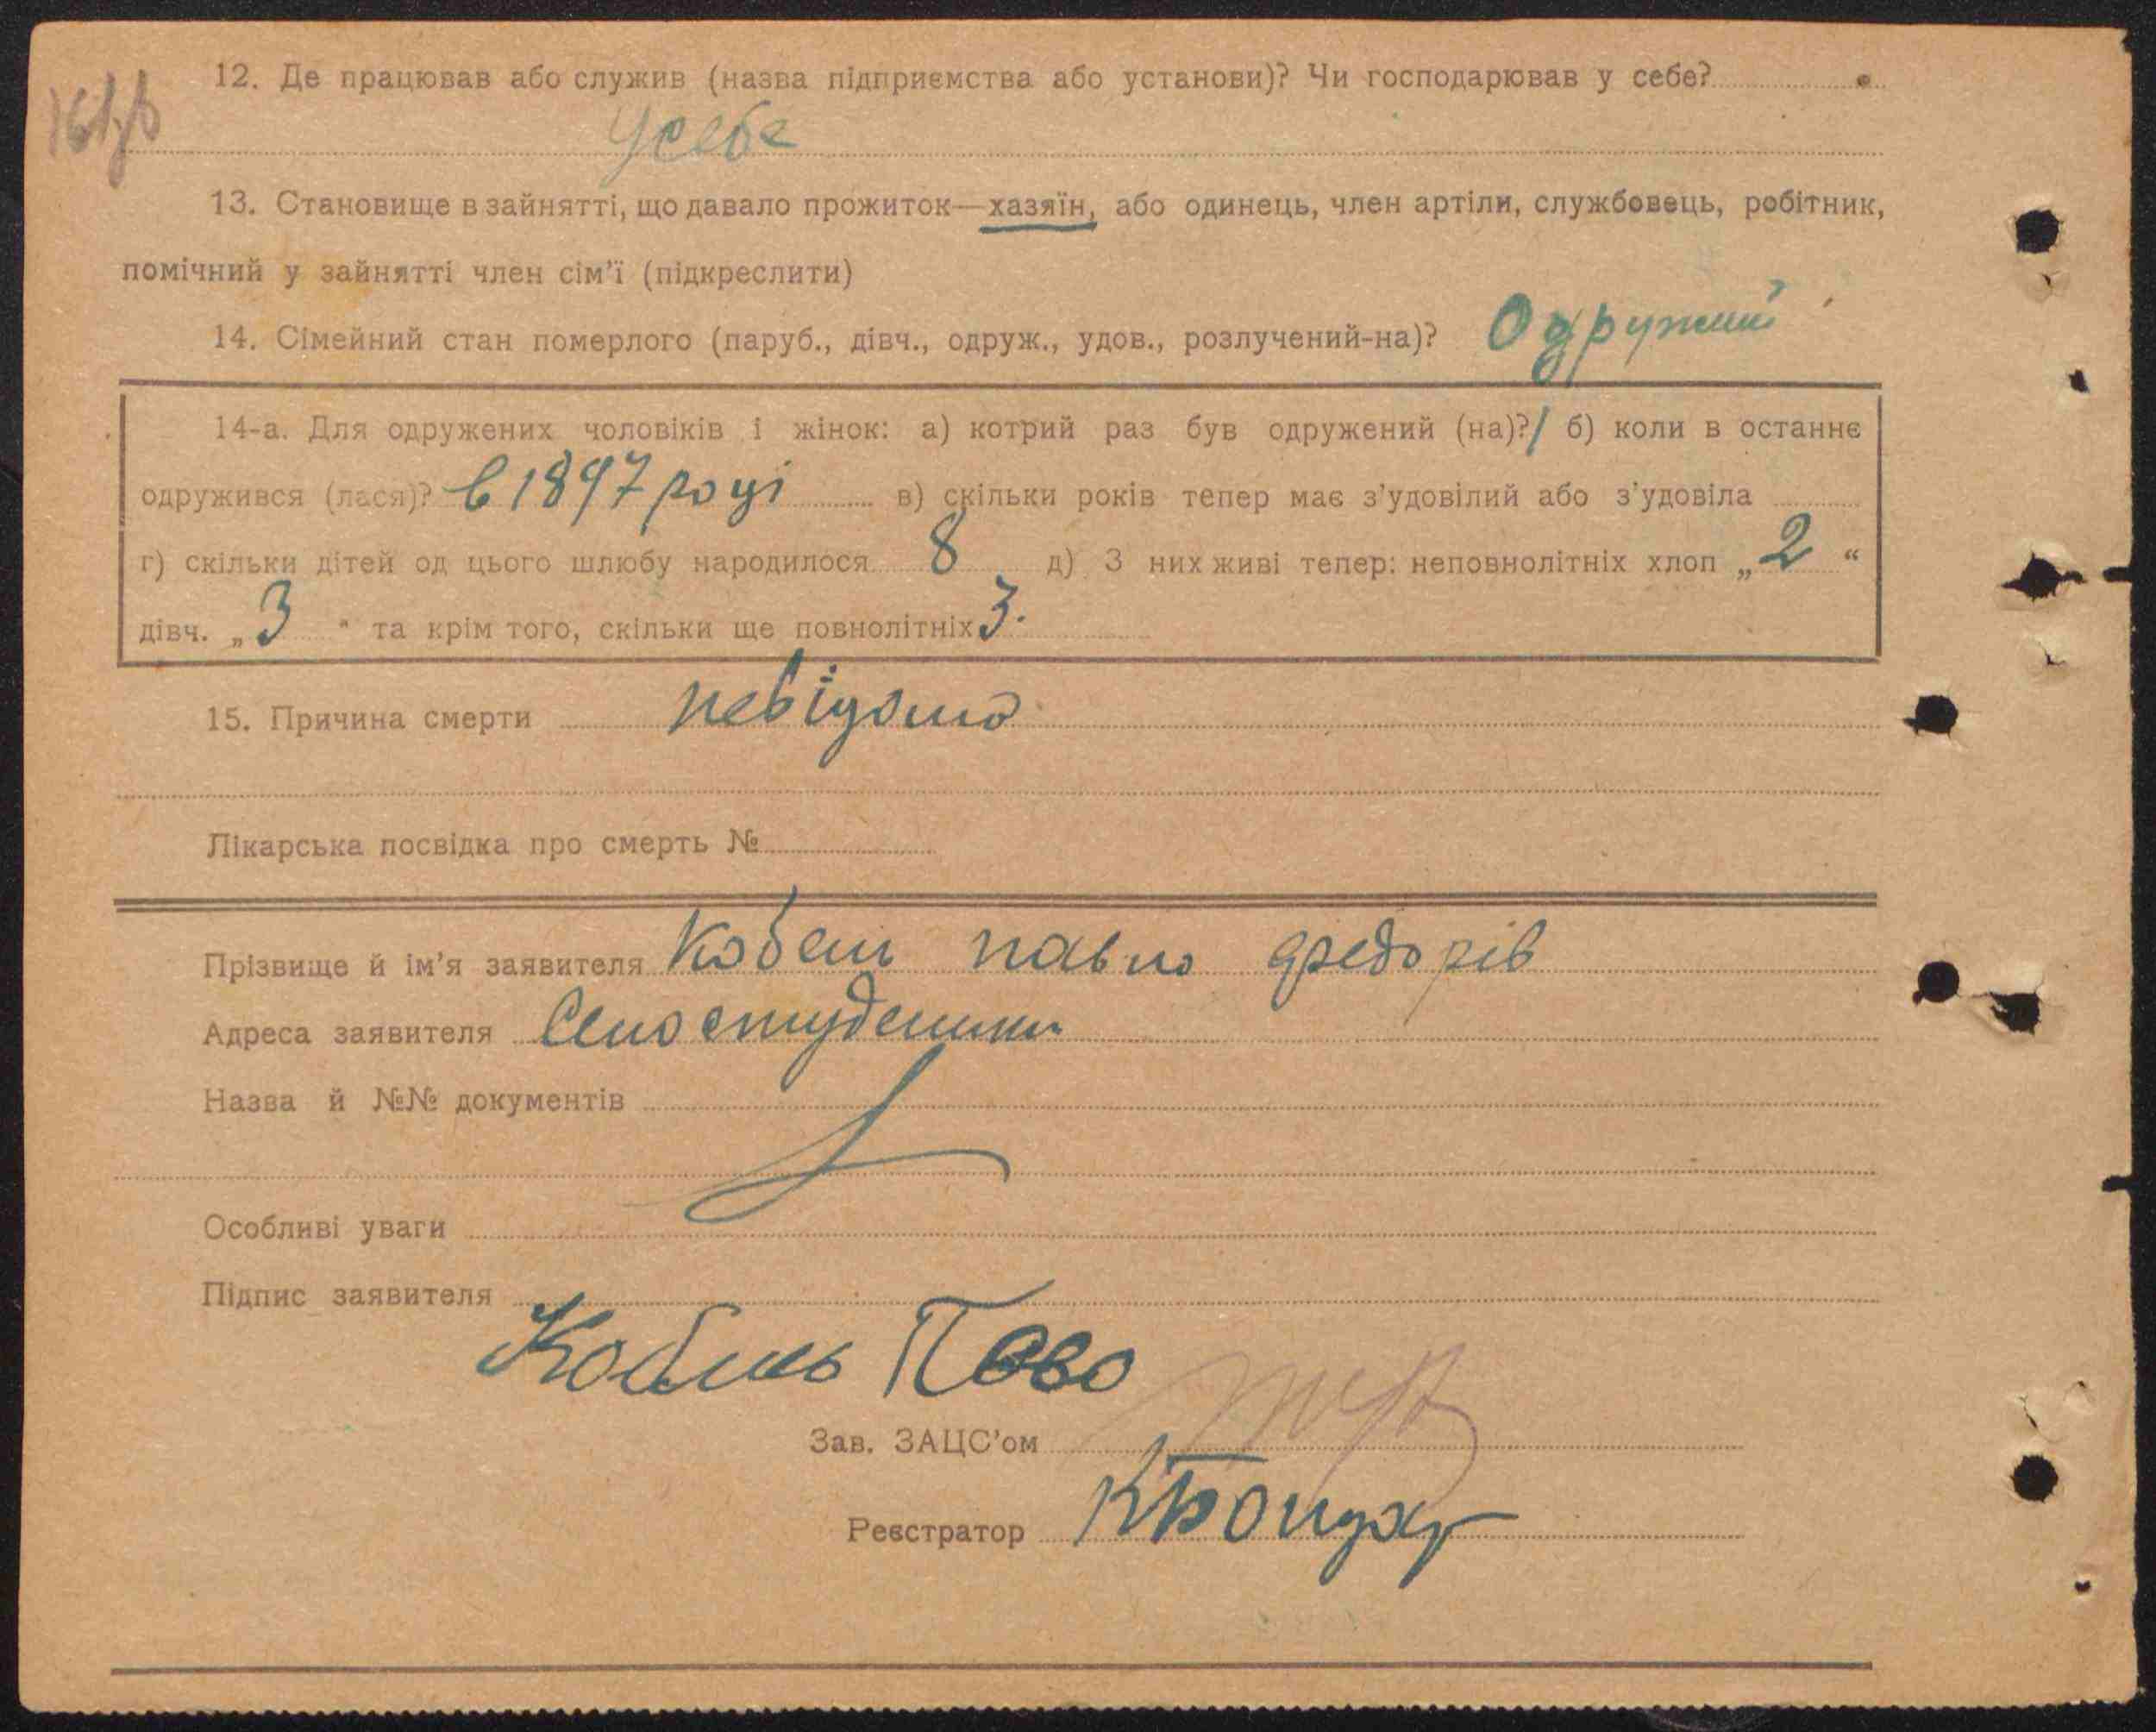 12. Де працював або служив (назва підприємства або установи)? Чи господарював у себе?
Усебе
13. Становище в зайнятті, що давало прожиток—хазяїн, або одинець, член артіли, службовець, робітник,
помічний у зайнятті член сім'ї (підкреслити)
14. Сімейний стан померлого (паруб., дівч., одруж., удов., розлучений-на)? Одружний
14-а. Для одружених чоловіків і жінок: а) котрий раз був одружений (на)? 1 б) коли в останнє
одружився (лася)? в 1897 році в) скільки років тепер має з'удовілий або з'удовіла
г) скільки дітей од цього шлюбу народилося 8 д) З них живі тепер: неповнолітніх хлоп „2“
дівч. „3“ та крім того, скільки ще повнолітніх 3.
15. Причина смерти невідомо
Лікарська посвідка про смерть №
Прізвище й ім'я заявителя Кобель павло федорів
Адреса заявителя Село студеники
Назва й №№ документів
Особливі уваги
Підпис заявителя
Кобиль Паво
Зав. ЗАЦС'ом
Реєстратор